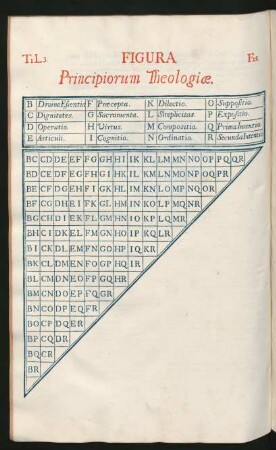 FIGURA
Principiorum Theologiæ.
B Divina Essentia F Præcepta. K Dilectio. O Suppositio.
C Dignitates. G Sacramenta. L Simplicitas. P Expositio.
D Operatio. H Virtus. M Compositio. Q Prima Intentio.
E Articuli. I Cognitio. N Ordinatio. R Secunda Intentio
BC CD DE EF FG GH HI IK KL LM MN NO OP PQ QR
BD CE DF EG FH GI HK IL KM LN MO NP OQ PR
BE CF DG EH FI GK HL IM KN LO MP NQ OR
BF CG DH EI FK GL HM IN KO LP MQ NR
BG CH DI EK FL GM HN IO KP LQ MR
BH CI DK EL FM GN HO IP KQ LR
BI CK DL EM FN GO HP IQ KR
BK CL DM EN FO GP HQ IR
BL CM DN EO FP GQ HR
BM CN DO EP FQ GR
BN CO DP EQ FR
BO CP DQ ER
BP CQ DR
BQ CR
BR